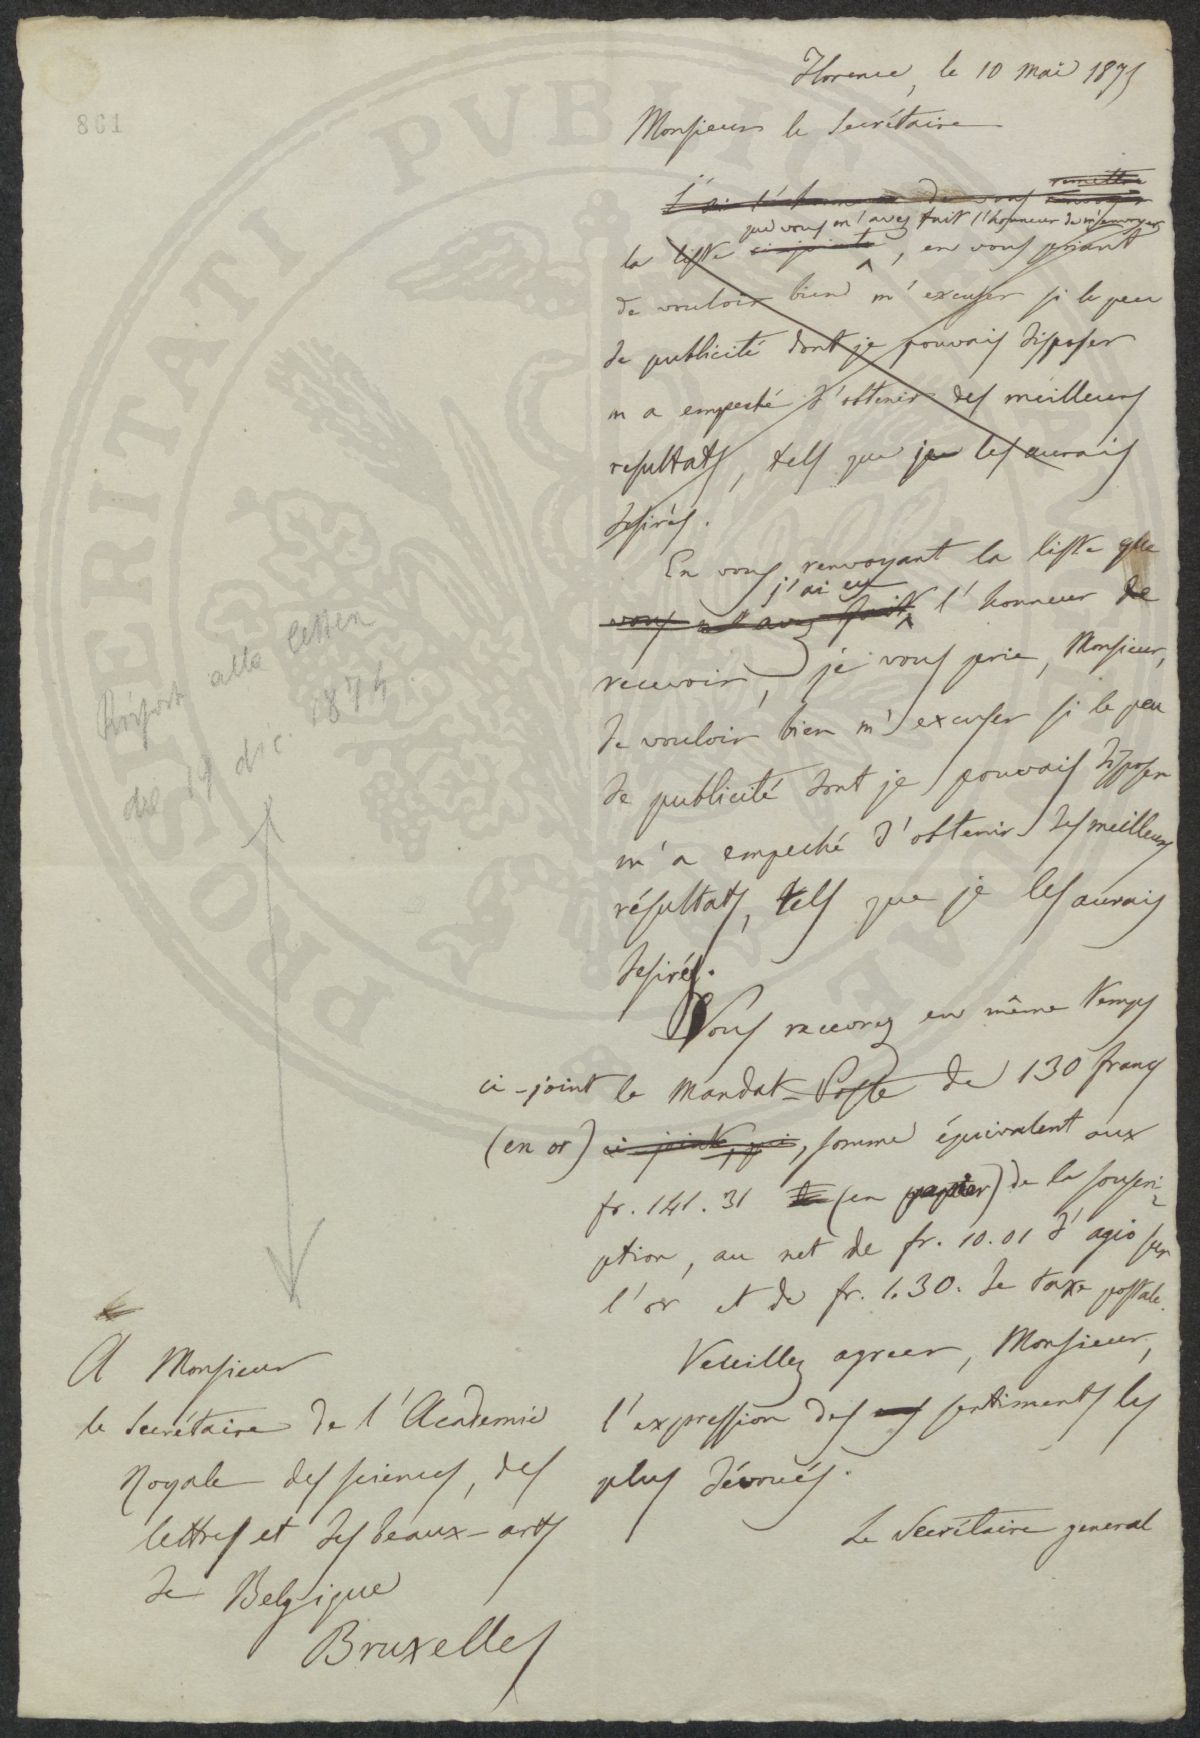 861
Florence, le 10 mai 1875
Monsieur le Secrétaire
remettre
J'ai l'honneur de vous renvoyer
que vous m'avez fait l'honneur de m'envoyer
la liste ci-jointe, en vous priant
de vouloir bien m'excuser si le peu
de publicité dont je pouvais disposer
m'a empeché d'obtenir des meilleurs
resultats, tels que je les aurais
desirés.
En vous renvoyant la liste que
j'ai eu
vous m'avez fait l'honneur de
recevoir, je vous prie, Monsieur,
de vouloir bien m'excuser si le peu
de publicité dont je pouvais disposer
m'a empeché d'obtenir des meilleurs
résultats, tels que je les aurais
desirés.
Vous recevrez en même temps
ci-joint le mandat-Poste de 130 francs
(en or) ci joint, somme équivalent aux
fr. 141.31 (en papier) de la souscri-
ption, au net de fr. 10.01 d'agio sur
l'or et de fr. 1.30. de taxe postale.
Veuillez agreer, Monsieur,
l'expression des sentiments les
plus dévoués.
Le Secrétaire general
Risposta alla lettera
del 19 dic. 1874
A Monsieur
le Secrétaire de l'Academie
Royale des sciences, des
lettres et des beaux-arts
de Belgique
Bruxelles
PROSPERITATI PVBLICAE AVGENDAE